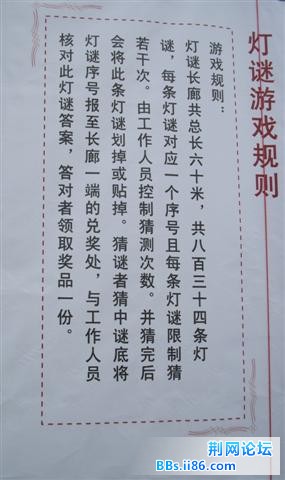 灯谜游戏规则
游戏规则：
灯谜长廊共总长六十米，共八百三十四条灯
谜，每条灯谜对应一个序号且每条灯谜限制猜
若干次。由工作人员控制猜测次数。并猜完后
会将此条灯谜划掉或贴掉。猜谜者猜中谜底将
灯谜序号报至长廊一端的兑奖处，与工作人员
核对此灯谜答案，答对者领取奖品一份。
荆网论坛
BBs.ii86.com